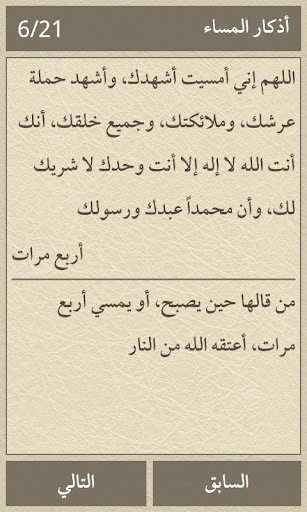 أذكار المساء 6/21
اللهم إني أمسيت أشهدك، وأشهد حملة
عرشك، وملائكتك، وجميع خلقك، أنك
أنت الله لا إله إلا أنت وحدك لا شريك
لك، وأن محمداً عبدك ورسولك
أربع مرات
من قالها حين يصبح، أو يمسي أربع
مرات، أعتقه الله من النار
السابق التالي